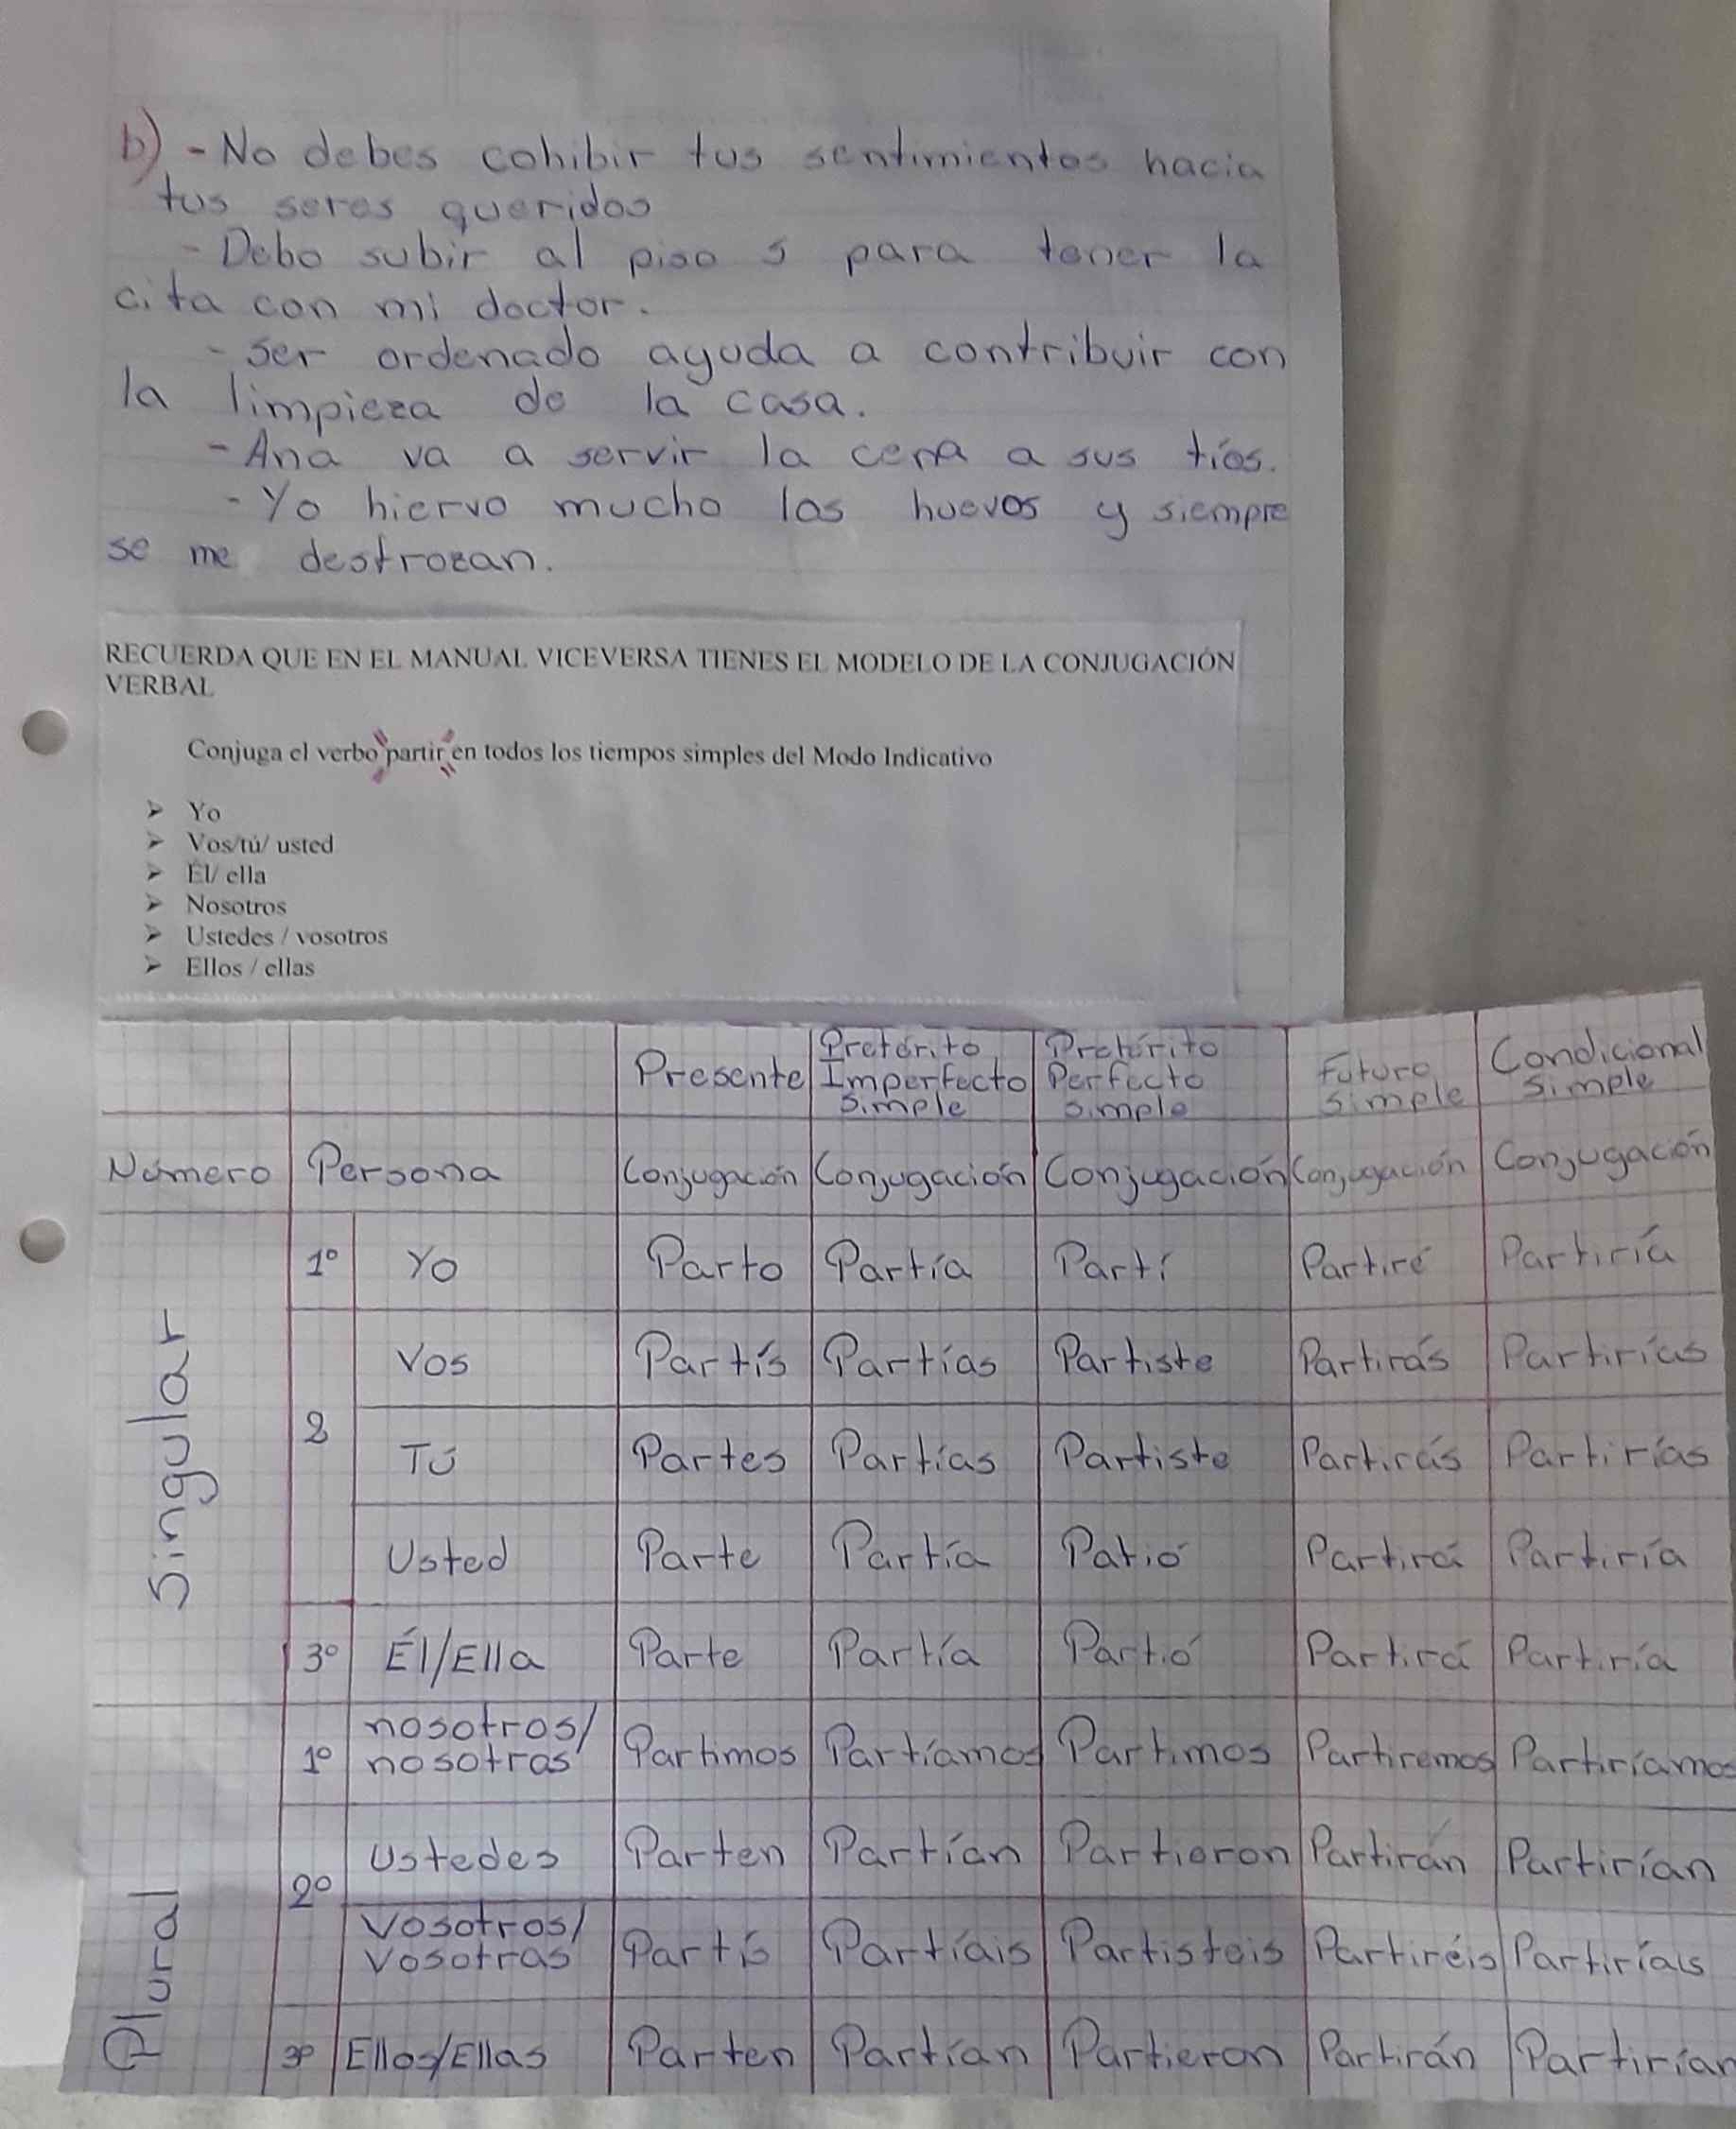 b) - No debes cohibir tus sentimientos hacia
tus seres queridos
- Debo subir al piso 5 para tener la
cita con mi doctor.
- Ser ordenado ayuda a contribuir con
la limpieza de la casa.
- Ana va a servir la cena a sus tíos.
- Yo hiervo mucho los huevos y siempre
se me destrozan.
RECUERDA QUE EN EL MANUAL VICEVERSA TIENES EL MODELO DE LA CONJUGACIÓN
VERBAL
Conjuga el verbo "partir" en todos los tiempos simples del Modo Indicativo
➢ Yo
➢ Vos/tú/ usted
➢ Él/ ella
➢ Nosotros
➢ Ustedes / vosotros
➢ Ellos / ellas
Presente Pretérito Imperfecto Simple Pretérito Perfecto simple Futuro simple Condicional simple
Número Persona Conjugación Conjugación Conjugación Conjugación Conjugación
Singular
1º Yo Parto Partía Partí Partiré Partiría
2 Vos Partís Partías Partiste Partirás Partirías
Tú Partes Partías Partiste Partirás Partirías
Usted Parte Partía Patió Partirá Partiría
3º Él/Ella Parte Partía Partió Partirá Partiría
Plural
1º nosotros/ nosotras Partimos Partíamos Partimos Partiremos Partiríamos
2º Ustedes Parten Partían Partieron Partirán Partirían
Vosotros/ Vosotras Partís Partíais Partisteis Partiréis Partiríais
3º Ellos/Ellas Parten Partían Partieron Partirán Partirían